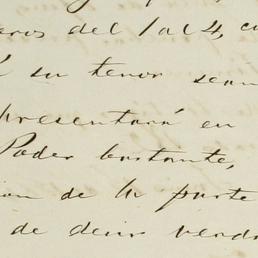 eros del 1 al 4, cu
é su tenor sean
presentará en
Poder bastante,
ion de la parte
de decir verda